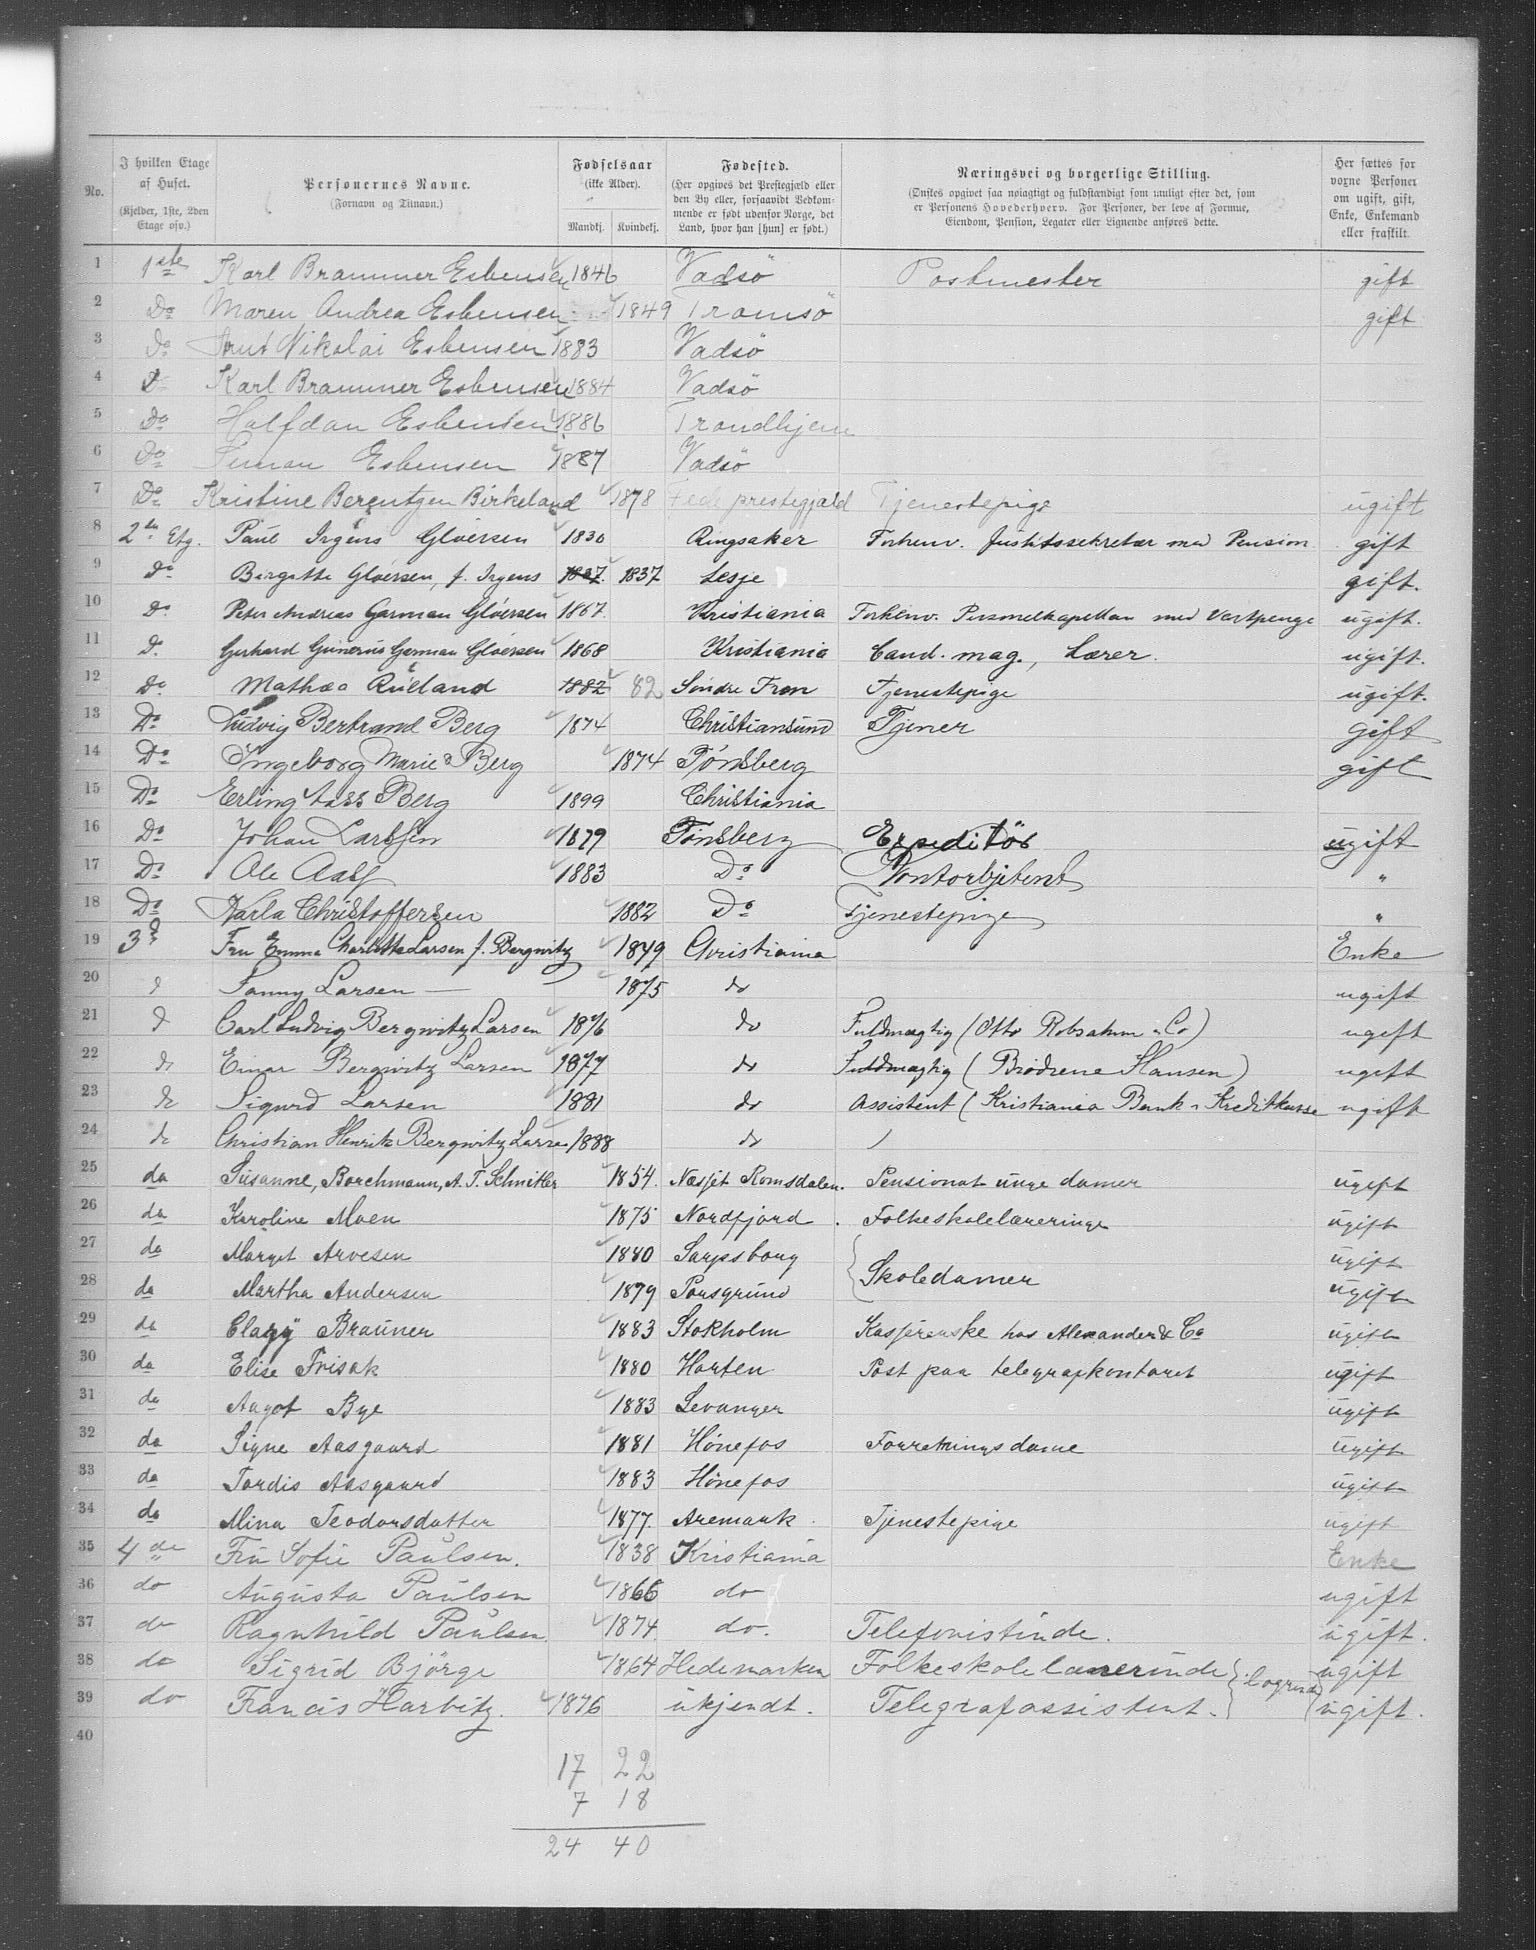 No.
I hvilken Etage af Huset. (Kjelder, 1ste, 2den Etage osv.)
Personernes Navne. (Fornavn og Tilnavn.)
Fødselsaar (ikke Alder). Mandkj. Kvindekj.
Fødested. (Her opgives det Prestegjæld eller den By eller, forsaavidt Vedkommende er født udenfor Norge, det Land, hvor han [hun] er født.)
Næringsvei og borgerlige Stilling. (Ønskes opgivet saa nøiagtigt og fuldstændigt som muligt efter det, som er Personens Hovederhverv. For Personer, der leve af Formue, Eiendom, Pension, Legater eller Lignende anføres dette.
Her sættes for voxne Personer om ugift, gift, Enke, Enkemand eller fraskilt.
1 1ste Karl Brammer Esbensen 1846 Vadsö Postmester gift
2 Do Maren Andrea Esbensen 1849 Tromsö gift
3 Do Nikolai Esbensen 1883 Vadsö
4 D Karl Brammer Esbensen 1884 Vadsö
5 Do Halfdan Esbensen 1886 Trondhjem
6 Do Esbensen 1887 Vadsö
7 Do Kristine Berentzen Birkeland 1878 prestegjæld Tjenestepige ugift
8 2den Etg. Paul Irgens Gløersen 1830 Ringsaker Forhenv. Justitssekretær med Pension gift
9 do Birgitte Gløersen, f. Irgens 1837. 1837 Lesje gift.
10 do Peter Andreas Garman Gløersen 1867. Kristiania Forhenv. Personelkapellan med Vartpenge ugift.
11 D. Gerhard Gunerus Garman Gløersen 1868 Kristiania Cand. mag., Lærer. ugift.
12 do Mathea Rueland 1882 82 Søndre Fron Tjenestepige ugift.
13 Do Ludvig Bertrand Berg 1874 Christiansund Tjener gift
14 Do Ingeborg Marie Berg 1874 Tønsberg gift
15 Do Erling Aass Berg 1899 Christiania
16 Do Johan Larssen 1879 Tønsberg Expeditör ugift
17 Do Ole Aass 1883 Do Kontorbetjent "
18 Do Karla Christoffersen 1882 Do Tjenestepige "
19 3d Fru Emma Charlotte Larsen f. Bergwitz 1849 Christiania Enke
20 d Fanny Larsen — 1875 do ugift
21 d Carl Ludvig Bergwitz Larsen 1876 do Fuldmægtig (Otto Robsahm & Co) ugift
22 do Einar Bergwitz Larsen 1877 do Fuldmægtig (Brødrene Hansen) ugift
23 do Sigurd Larsen 1881 do Assistent (Kristiania Bank & Kreditkasse ugift
24 do Christian Henrik Bergwitz Larsen 1888 do
25 do Susanne, Borchmann, A. T. Schnitler 1854. Næsjet Romsdalen. Pensionat unge damer ugift
26 do Karoline Moen 1875 Nordfjord. Folkeskolelæreringe ugift
27 do Marget Arvesen 1880 Sarpsborg ugift
28 do Martha Andersen 1879 Porsgrund Skoledamer ugift
29 do Clary Brauner 1883 Stokholm Kasjererske hos Alexander & Co ugift
30 do Elise Frisak 1880 Horten Post paa telegrafkontoret ugift
31 do Aagot Bye 1883 Levanger ugift
32 do Signe Aasgaard 1881 Hønefos Forretningsdame ugift
33 do Tordis Aasgaard 1883 Hønefos ugift
34 do Mina Teodorsdatter 1877. Aremark. Tjenestepige ugift
35 4de Fru Sofie Paulsen. 1838 Kristiania Enke
36 do Augusta Paulsen 1866 do ugift
37 do Ragnhild Paulsen 1874 do. Telefonistinde. ugift.
38 do Sigrid Bjørge 1864 Hedemarken Folkeskolelærerinde ugift
39 do Francis Harbitz. 1876 ukjendt. Telegrafassistent. ugift.
40
17 22
7 18
24 40